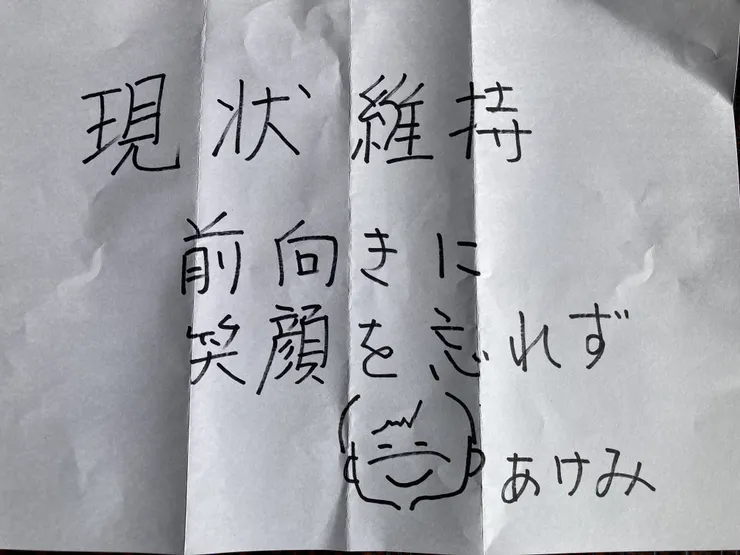 現状維持
前向きに
笑顔を忘れず
あけみ